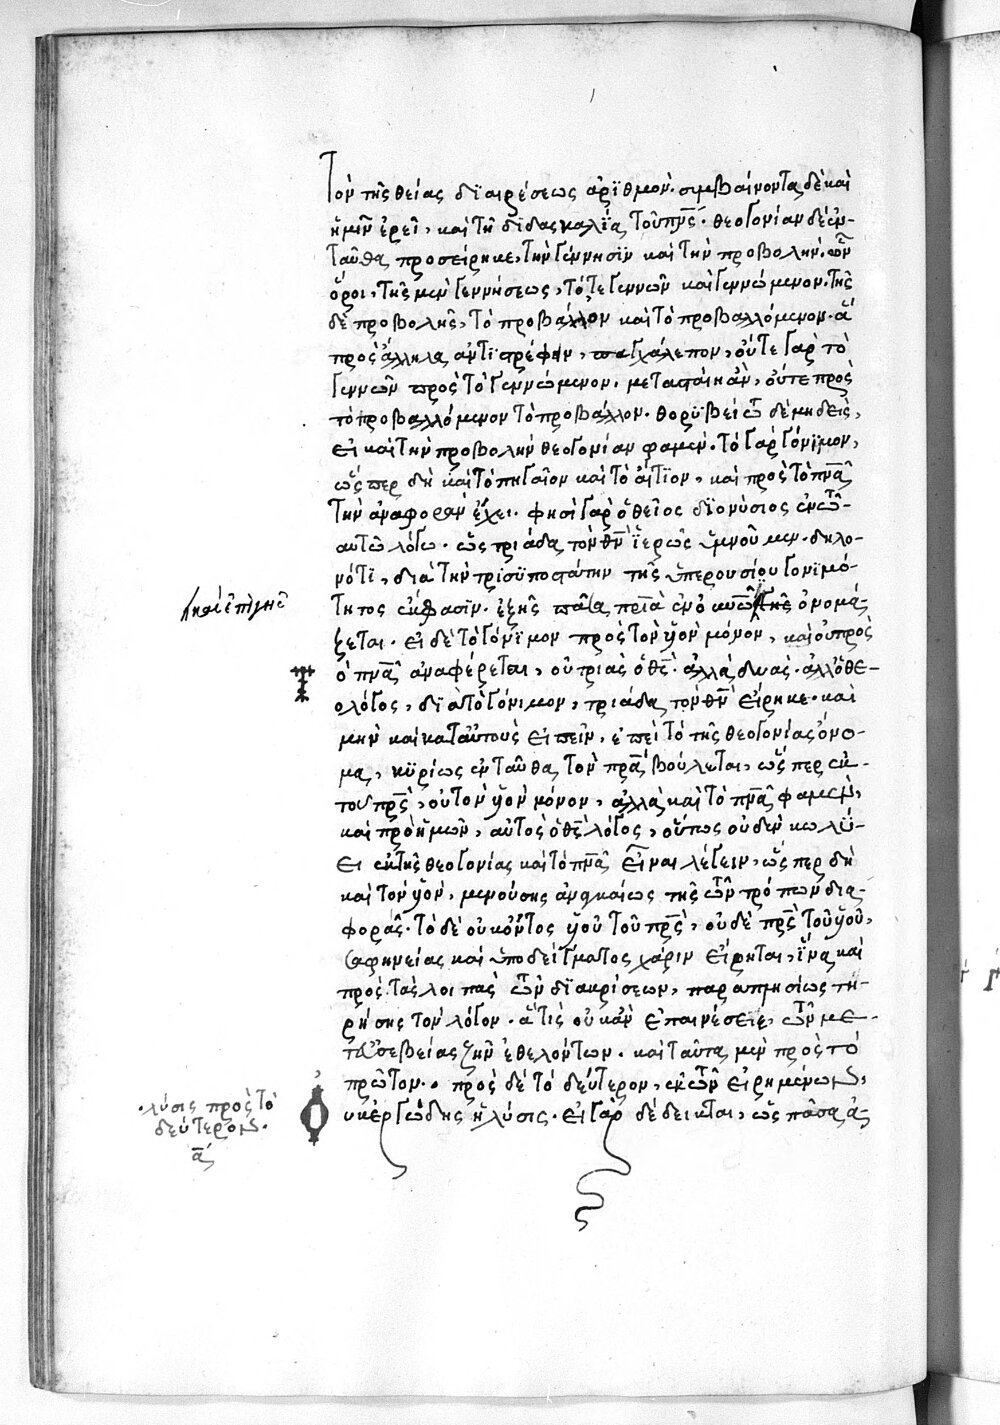 Τὸν τῆς θείας διαιρέσεως ἀριθμὸν· συμβαίνοντα δὲ καὶ
ἡμῖν ἐρεῖ, καὶ τῇ διδασκαλίᾳ τοῦ πν̅ς· θεογονίαν δὲ ἐν-
ταῦθα προσείρηκε, τὴν γέννησιν καὶ τὴν προβολὴν· ὧν
ὅροι, τῆς μὲν γεννήσεως, τό τε γεννῶν καὶ γεννώμενον· τῆς
δὲ προβολῆς, τὸ προβάλλον καὶ τὸ προβαλλόμενον· ἃ
πρὸς ἄλληλα ἀντιστρέφειν, παγχάλεπον, οὔτε γὰρ τὸ
γεννῶν πρὸς τὸ γεννώμενον, μεταπταίη ἂν, οὔτε πρὸς
τὸ προβαλλόμενον τὸ προβάλλον· θορυβείσθω δὲ μηδεὶς,
εἰ καὶ τὴν προβολὴν θεογονίαν φαμὲν· τὸ γὰρ γόνιμον,
ὥσπερ δὴ καὶ τὸ πηγαῖον καὶ τὸ αἴτιον, καὶ πρὸς τὸ πν̅α
τὴν ἀναφορὰν ἔχει· φησὶ γὰρ ὁ θεῖος διονύσιος ἐν τῷ
αὐτῷ λόγῳ· ὡς τριάδα τὸν θ̅ν ἱερῶς ὑμνοῦμεν· δηλο-
νότι, διὰ τὴν τρισυπόστατην τῆς ὑπερουσίου γονιμό-
τητος ἔκφασιν· ἑξῆς ὀνομά-
ζεται· εἰ δὲ τὸ γόνιμον πρὸς τὸν υ̅ν μόνον, καὶ οὐ πρὸς
ὁ πν̅α ἀναφέρεται, οὐ τριὰς ὁ θ̅ς· ἀλλὰ δυάς· ἀλλ' ὁ θε-
ολόγος, διὰ τὸ γόνιμον, τριάδα τὸν θ̅ν εἴρηκε· καὶ
μὴν καὶ κατ' αὐτοὺς εἰπεῖν, ἐπεὶ τὸ τῆς θεογονίας ὄνο-
μα, κυρίως ἐνταῦθα τὸν πρ̅α βούλεται, ὥσπερ ἐκ
τοῦ πρ̅ς, οὐ τὸν υ̅ν μόνον, ἀλλὰ καὶ τὸ πν̅α φαμὲν,
καὶ πρὸ ἡμῶν, αὐτὸς ὁ θ̅ς λόγος, οὕτως οὐδὲν κωλύ-
ει ἐκ τῆς θεογονίας καὶ τὸ πν̅α εἶναι λέγειν, ὥσπερ δὴ
καὶ τὸν υ̅ν, μενούσης ἀναγκαίως τῆς τῶν τρόπων δια-
φορᾶς· τὸ δὲ οὐκ ὄντος υ̅υ τοῦ πρ̅ς, οὐδὲ πρ̅ς τοῦ υ̅υ,
σαφηνείας καὶ ὑποδείγματος χάριν εἴρηται, ἵνα καὶ
πρὸς τὰς λοιπὰς τῶν διακρίσεων, παραπλησίως τη-
ρήσῃς τὸν λόγον· ἅ τις οὐκ ἂν ἐπαινέσειε, τῶν με-
τ' εὐσεβείας ζῆν ἐθελόντων· καὶ ταῦτα μὲν πρὸς τὸ
πρῶτον·· πρὸς δὲ τὸ δεύτερον, ἐκ τῶν εἰρημένων,
οὐκ ἐργώδης ἡ λύσις· εἰ γὰρ δέδεικται, ὡς πᾶσα ἀ-
·λύσις πρὸς τὸ
δεύτερον·
α̅